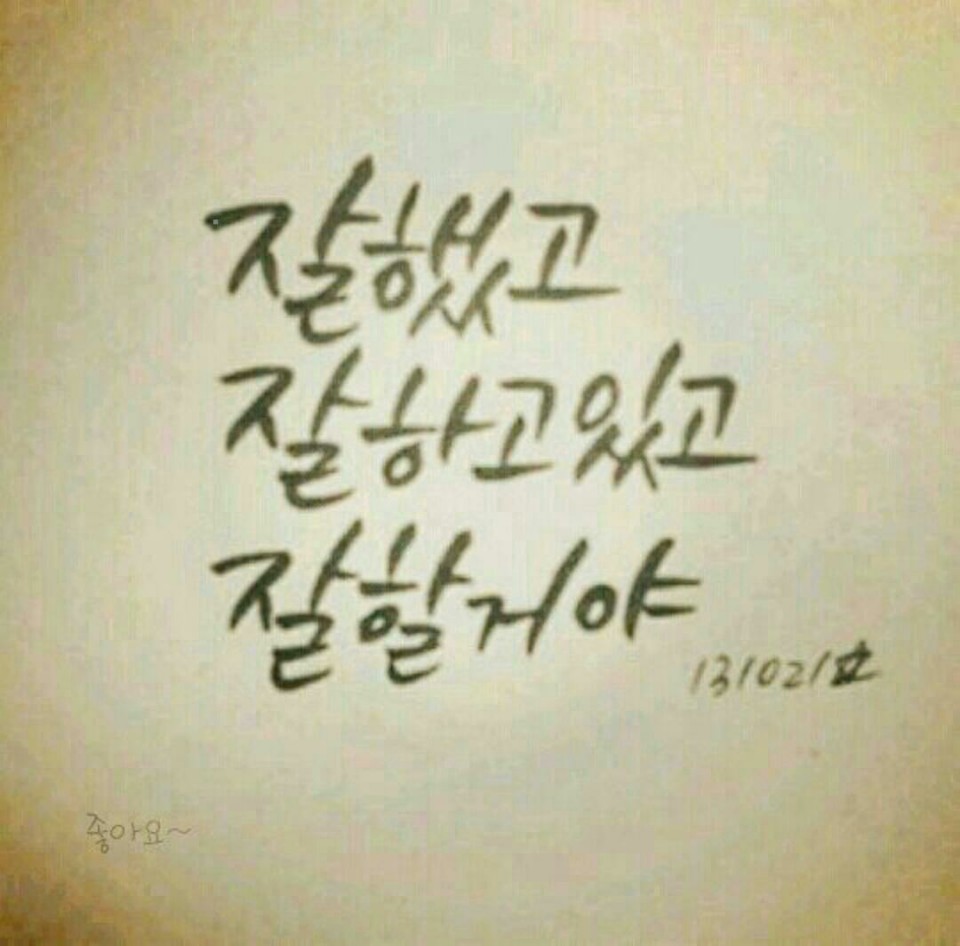 잘했고
잘하고있고
잘할거야
131021
좋아요~